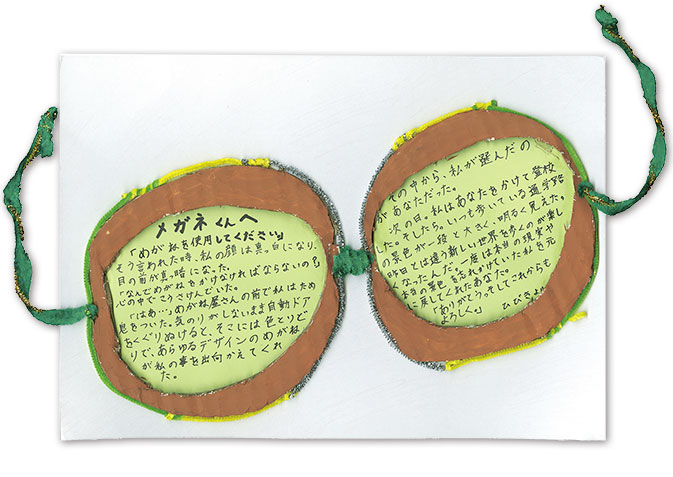 メガネくんへ
「めがねを使用してください」
そう言われた時、私の顔は真っ白になり、
目の前が真っ暗になった。
「なんでめがねをかけなければならないの」
心の中でそうさけんでいた。
「はあ…」めがね屋さんの前で私はため
息をついた。気のりがしないまま自動ドア
をくぐりぬけると、そこには色とりど
りで、あらゆるデザインのめがね
が私の事を出向かえてくれ
た。
その中から、私が選んだの
があなただった。
次の日。私はあなたをかけて登校
した。そしたら、いつも歩いている通学路
の景色が一段と大きく、明るく見えた。
昨日とは違う新しい世界を歩くのが楽しく
なったんだ。一度は本当の現実や
本当の景色を忘れかけていた私を元に
戻してくれたあなた。
「ありがとう」そしてこれからも
よろしく。」
ひびきより